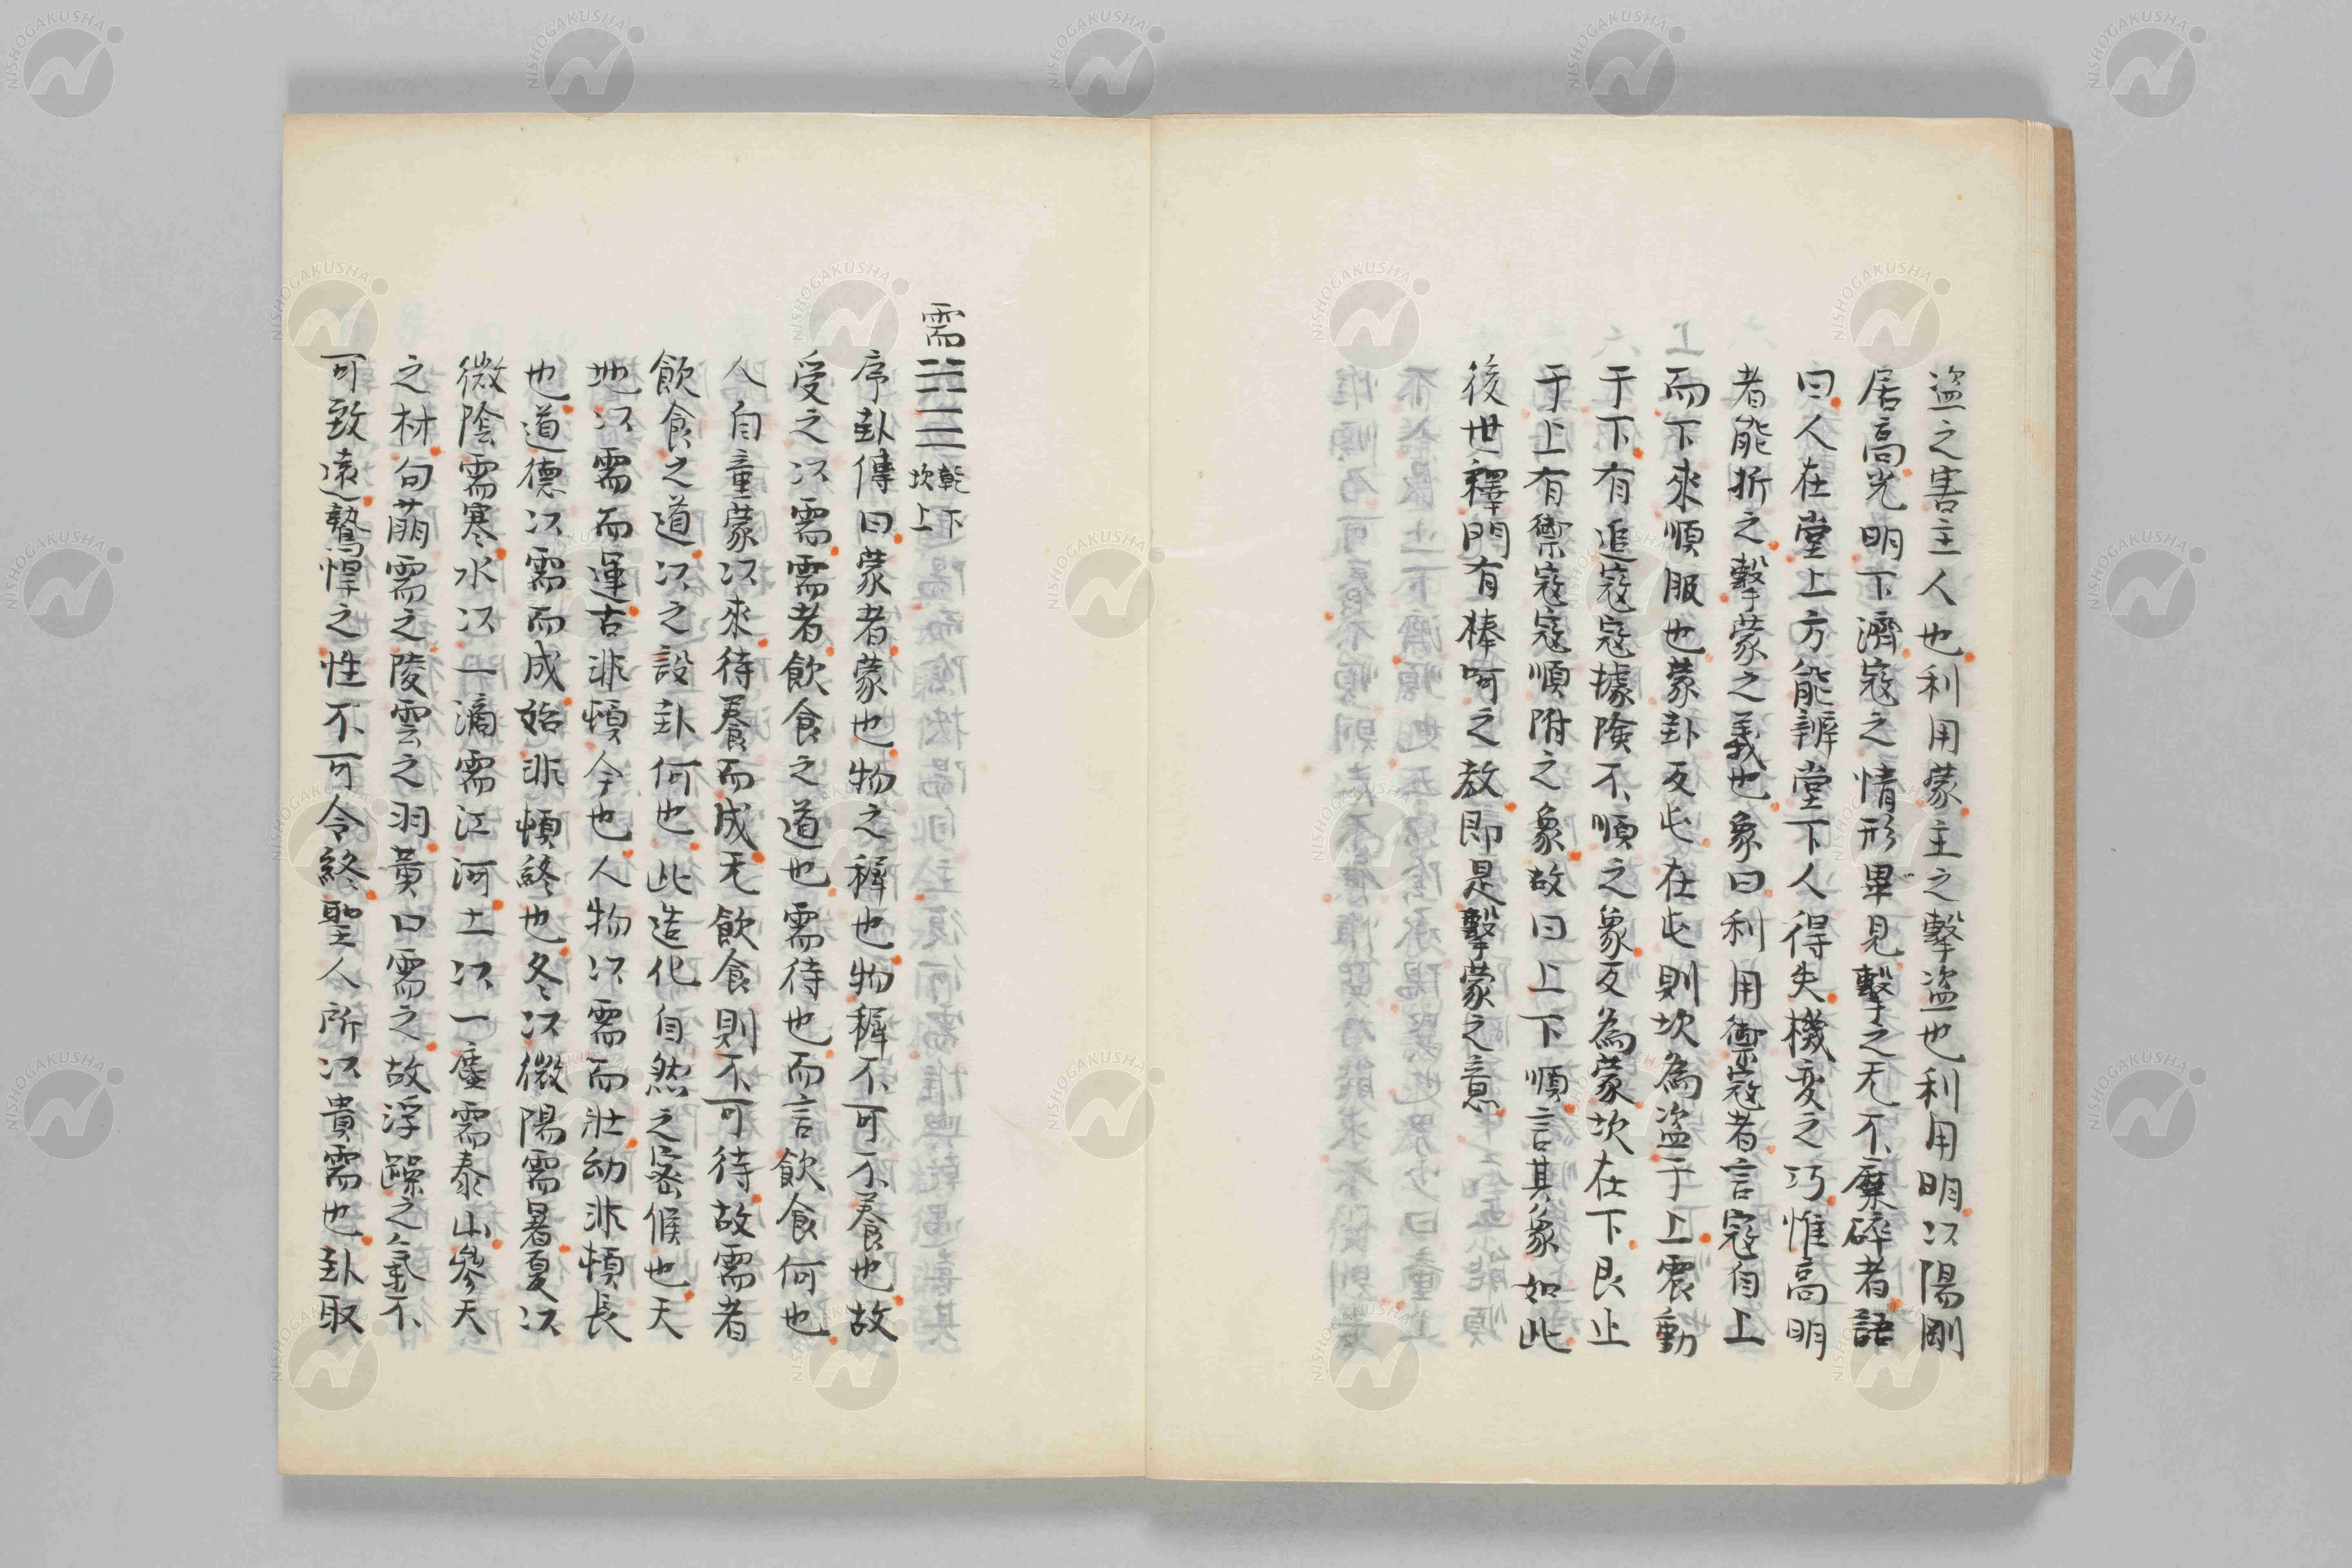 盜之害主人也利用蒙主之擊盜也利用明以陽剛
居高光明下濟寇之情形畢見擊之无不糜碎者語
曰人在堂上方能辨堂下人得失機変之巧惟高明
者能折之擊蒙之義也象曰利用禦寇者言寇自上
而下來順服也蒙卦反屯在屯則坎為盜于上震動
于下有追寇寇據險不順之象反為蒙坎在下艮止
于上有禦寇寇順附之象故曰上下順言其象如此
後世釋門有棒呵之教即是擊蒙之意
需 乾下坎上
序卦傳曰蒙者蒙也物之穉也物穉不可不養也故
受之以需需者飲食之道也需待也而言飲食何也
人自童蒙以來待養而成无飲食則不可待故需者
飲食之道以之設卦何也此造化自然之密候也天
地以需而運古非頓今也人物以需而壯幼非頓長
也道德以需而成始非頓終也冬以微陽需暑夏以
微陰需寒水以一滴需江河土以一塵需泰山參天
之材句萠需之陵雲之羽黃口需之故浮躁之氣不
可致遠鷙悍之性不可令終聖人所以貴需也卦取
NISHOGAKUSHA